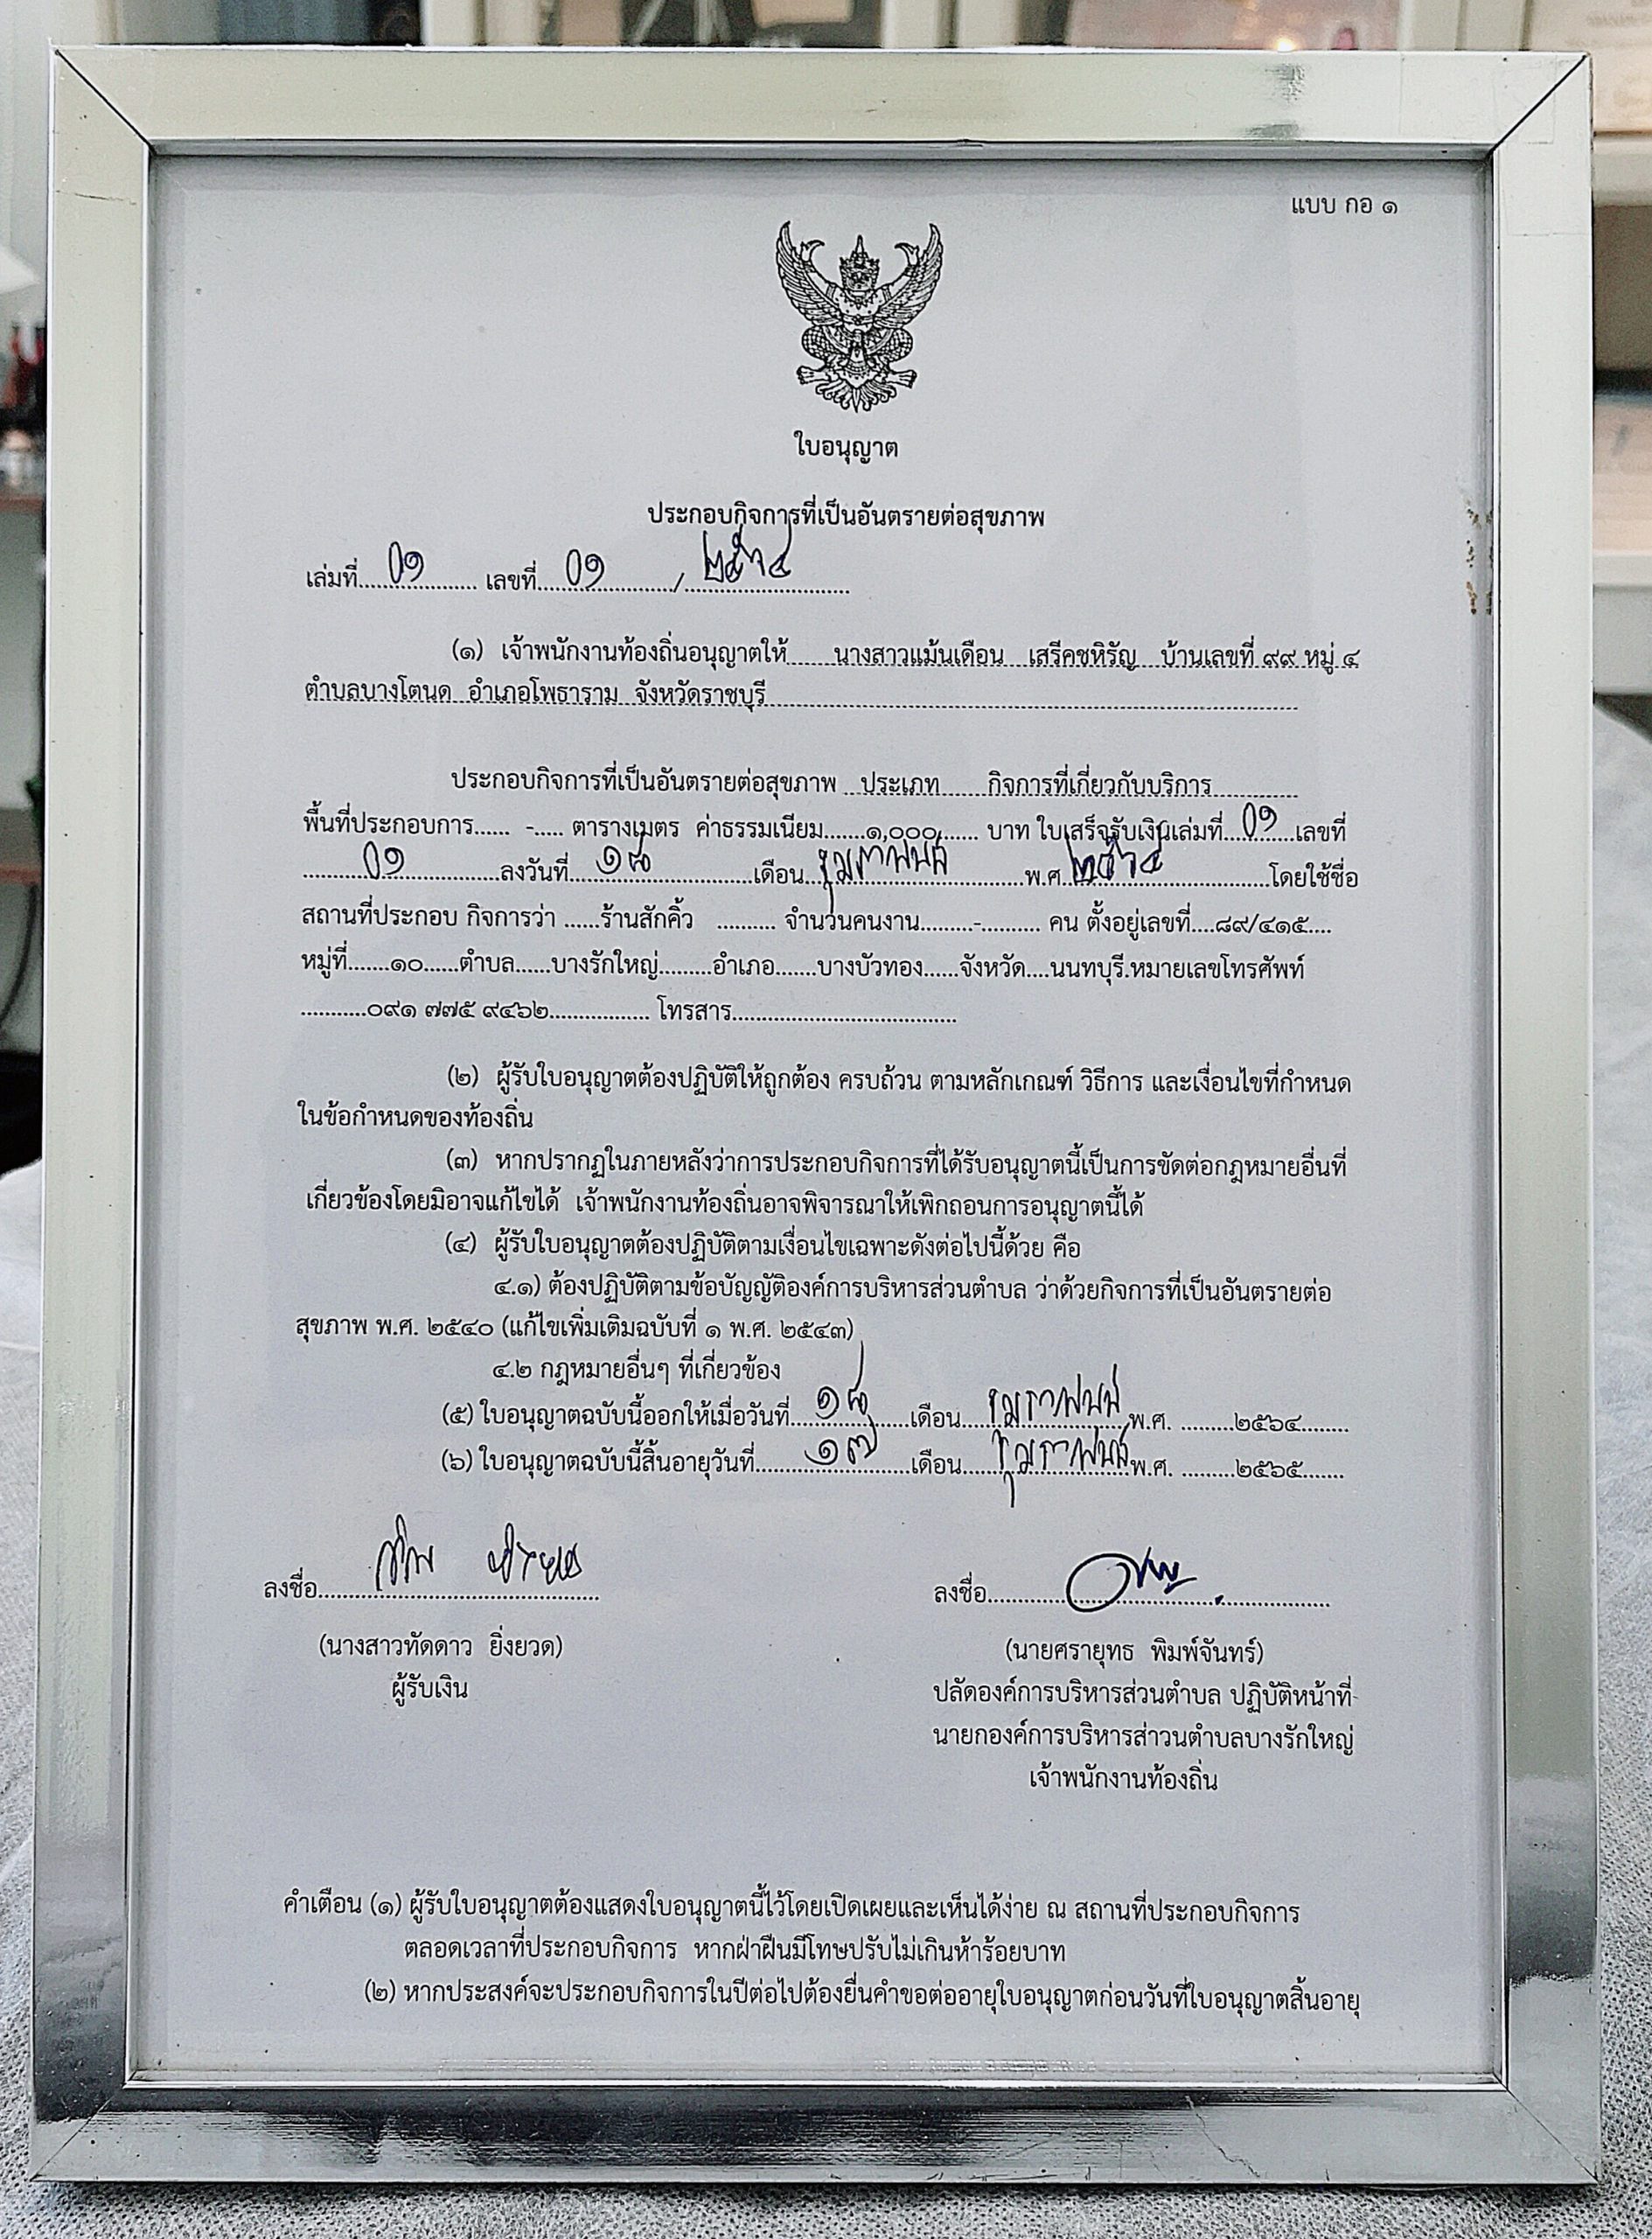 แบบ กอ ๑
ใบอนุญาต
ประกอบกิจการที่เป็นอันตรายต่อสุขภาพ
เล่มที่.....๐๑..... เลขที่.....๐๑...../.....๒๕๖๔.....
(๑) เจ้าพนักงานท้องถิ่นอนุญาตให้......นางสาวแม้นเดือน เสรีคชหิรัญ บ้านเลขที่ ๙๙ หมู่ ๔
ตำบลบางโตนด อำเภอโพธาราม จังหวัดราชบุรี
ประกอบกิจการที่เป็นอันตรายต่อสุขภาพ ..ประเภท......กิจการที่เกี่ยวกับบริการ
พื้นที่ประกอบการ...... -..... ตารางเมตร ค่าธรรมเนียม.......๑,๐๐๐....... บาท ใบเสร็จรับเงินเล่มที่...๐๑...เลขที่
.....๐๑.....ลงวันที่.....๑๘.....เดือน.....กุมภาพันธ์.....พ.ศ.๒๕๖๔.....โดยใช้ชื่อ
สถานที่ประกอบ กิจการว่า ......ร้านสักคิ้ว .......... จำนวนคนงาน.........-.......... คน ตั้งอยู่เลขที่....๘๙/๔๑๕....
หมู่ที่.......๑๐......ตำบล......บางรักใหญ่.........อำเภอ.......บางบัวทอง......จังหวัด....นนทบุรี.หมายเลขโทรศัพท์
...........๐๙๑ ๗๗๕ ๙๔๖๒................. โทรสาร......................................
(๒) ผู้รับใบอนุญาตต้องปฏิบัติให้ถูกต้อง ครบถ้วน ตามหลักเกณฑ์ วิธีการ และเงื่อนไขที่กำหนด
ในข้อกำหนดของท้องถิ่น
(๓) หากปรากฏในภายหลังว่าการประกอบกิจการที่ได้รับอนุญาตนี้เป็นการขัดต่อกฎหมายอื่นที่
เกี่ยวข้องโดยมิอาจแก้ไขได้ เจ้าพนักงานท้องถิ่นอาจพิจารณาให้เพิกถอนการอนุญาตนี้ได้
(๔) ผู้รับใบอนุญาตต้องปฏิบัติตามเงื่อนไขเฉพาะดังต่อไปนี้ด้วย คือ
๔.๑) ต้องปฏิบัติตามข้อบัญญัติองค์การบริหารส่วนตำบล ว่าด้วยกิจการที่เป็นอันตรายต่อ
สุขภาพ พ.ศ. ๒๕๔๐ (แก้ไขเพิ่มเติมฉบับที่ ๑ พ.ศ. ๒๕๔๓)
๔.๒ กฎหมายอื่นๆ ที่เกี่ยวข้อง
(๕) ใบอนุญาตฉบับนี้ออกให้เมื่อวันที่.....๑๘.....เดือน.....กุมภาพันธ์.....พ.ศ. .........๒๕๖๔........
(๖) ใบอนุญาตฉบับนี้สิ้นอายุวันที่.....๑๗.....เดือน.....กุมภาพันธ์.....พ.ศ. .........๒๕๖๕.......
ลงชื่อ.............................................. ลงชื่อ..............................................
(นางสาวทัดดาว ยิ่งยวด) (นายศรายุทธ พิมพ์จันทร์)
ผู้รับเงิน ปลัดองค์การบริหารส่วนตำบล ปฏิบัติหน้าที่
นายกองค์การบริหารส่าวนตำบลบางรักใหญ่
เจ้าพนักงานท้องถิ่น
คำเตือน (๑) ผู้รับใบอนุญาตต้องแสดงใบอนุญาตนี้ไว้โดยเปิดเผยและเห็นได้ง่าย ณ สถานที่ประกอบกิจการ
ตลอดเวลาที่ประกอบกิจการ หากฝ่าฝืนมีโทษปรับไม่เกินห้าร้อยบาท
(๒) หากประสงค์จะประกอบกิจการในปีต่อไปต้องยื่นคำขอต่ออายุใบอนุญาตก่อนวันที่ใบอนุญาตสิ้นอายุ